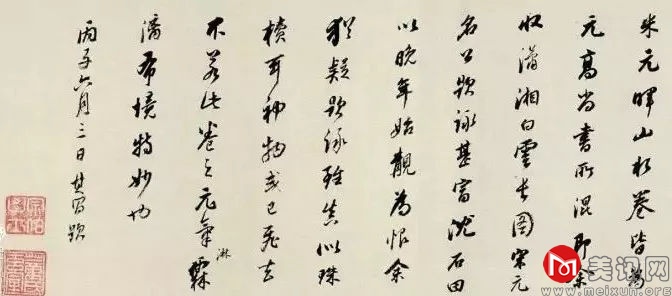 米元暉山水卷皆為
元高尚書所混即余
收瀟湘白雲長圖宋元
名公題詠甚富沈石田
以晚年始覯為恨余
猶疑題詠雖真似珠
櫝耳神物或已飛去
不若此卷之元氣淋霖
漓布境特妙也
丙子六月三日其昌題
美讯网
www.meixun.org